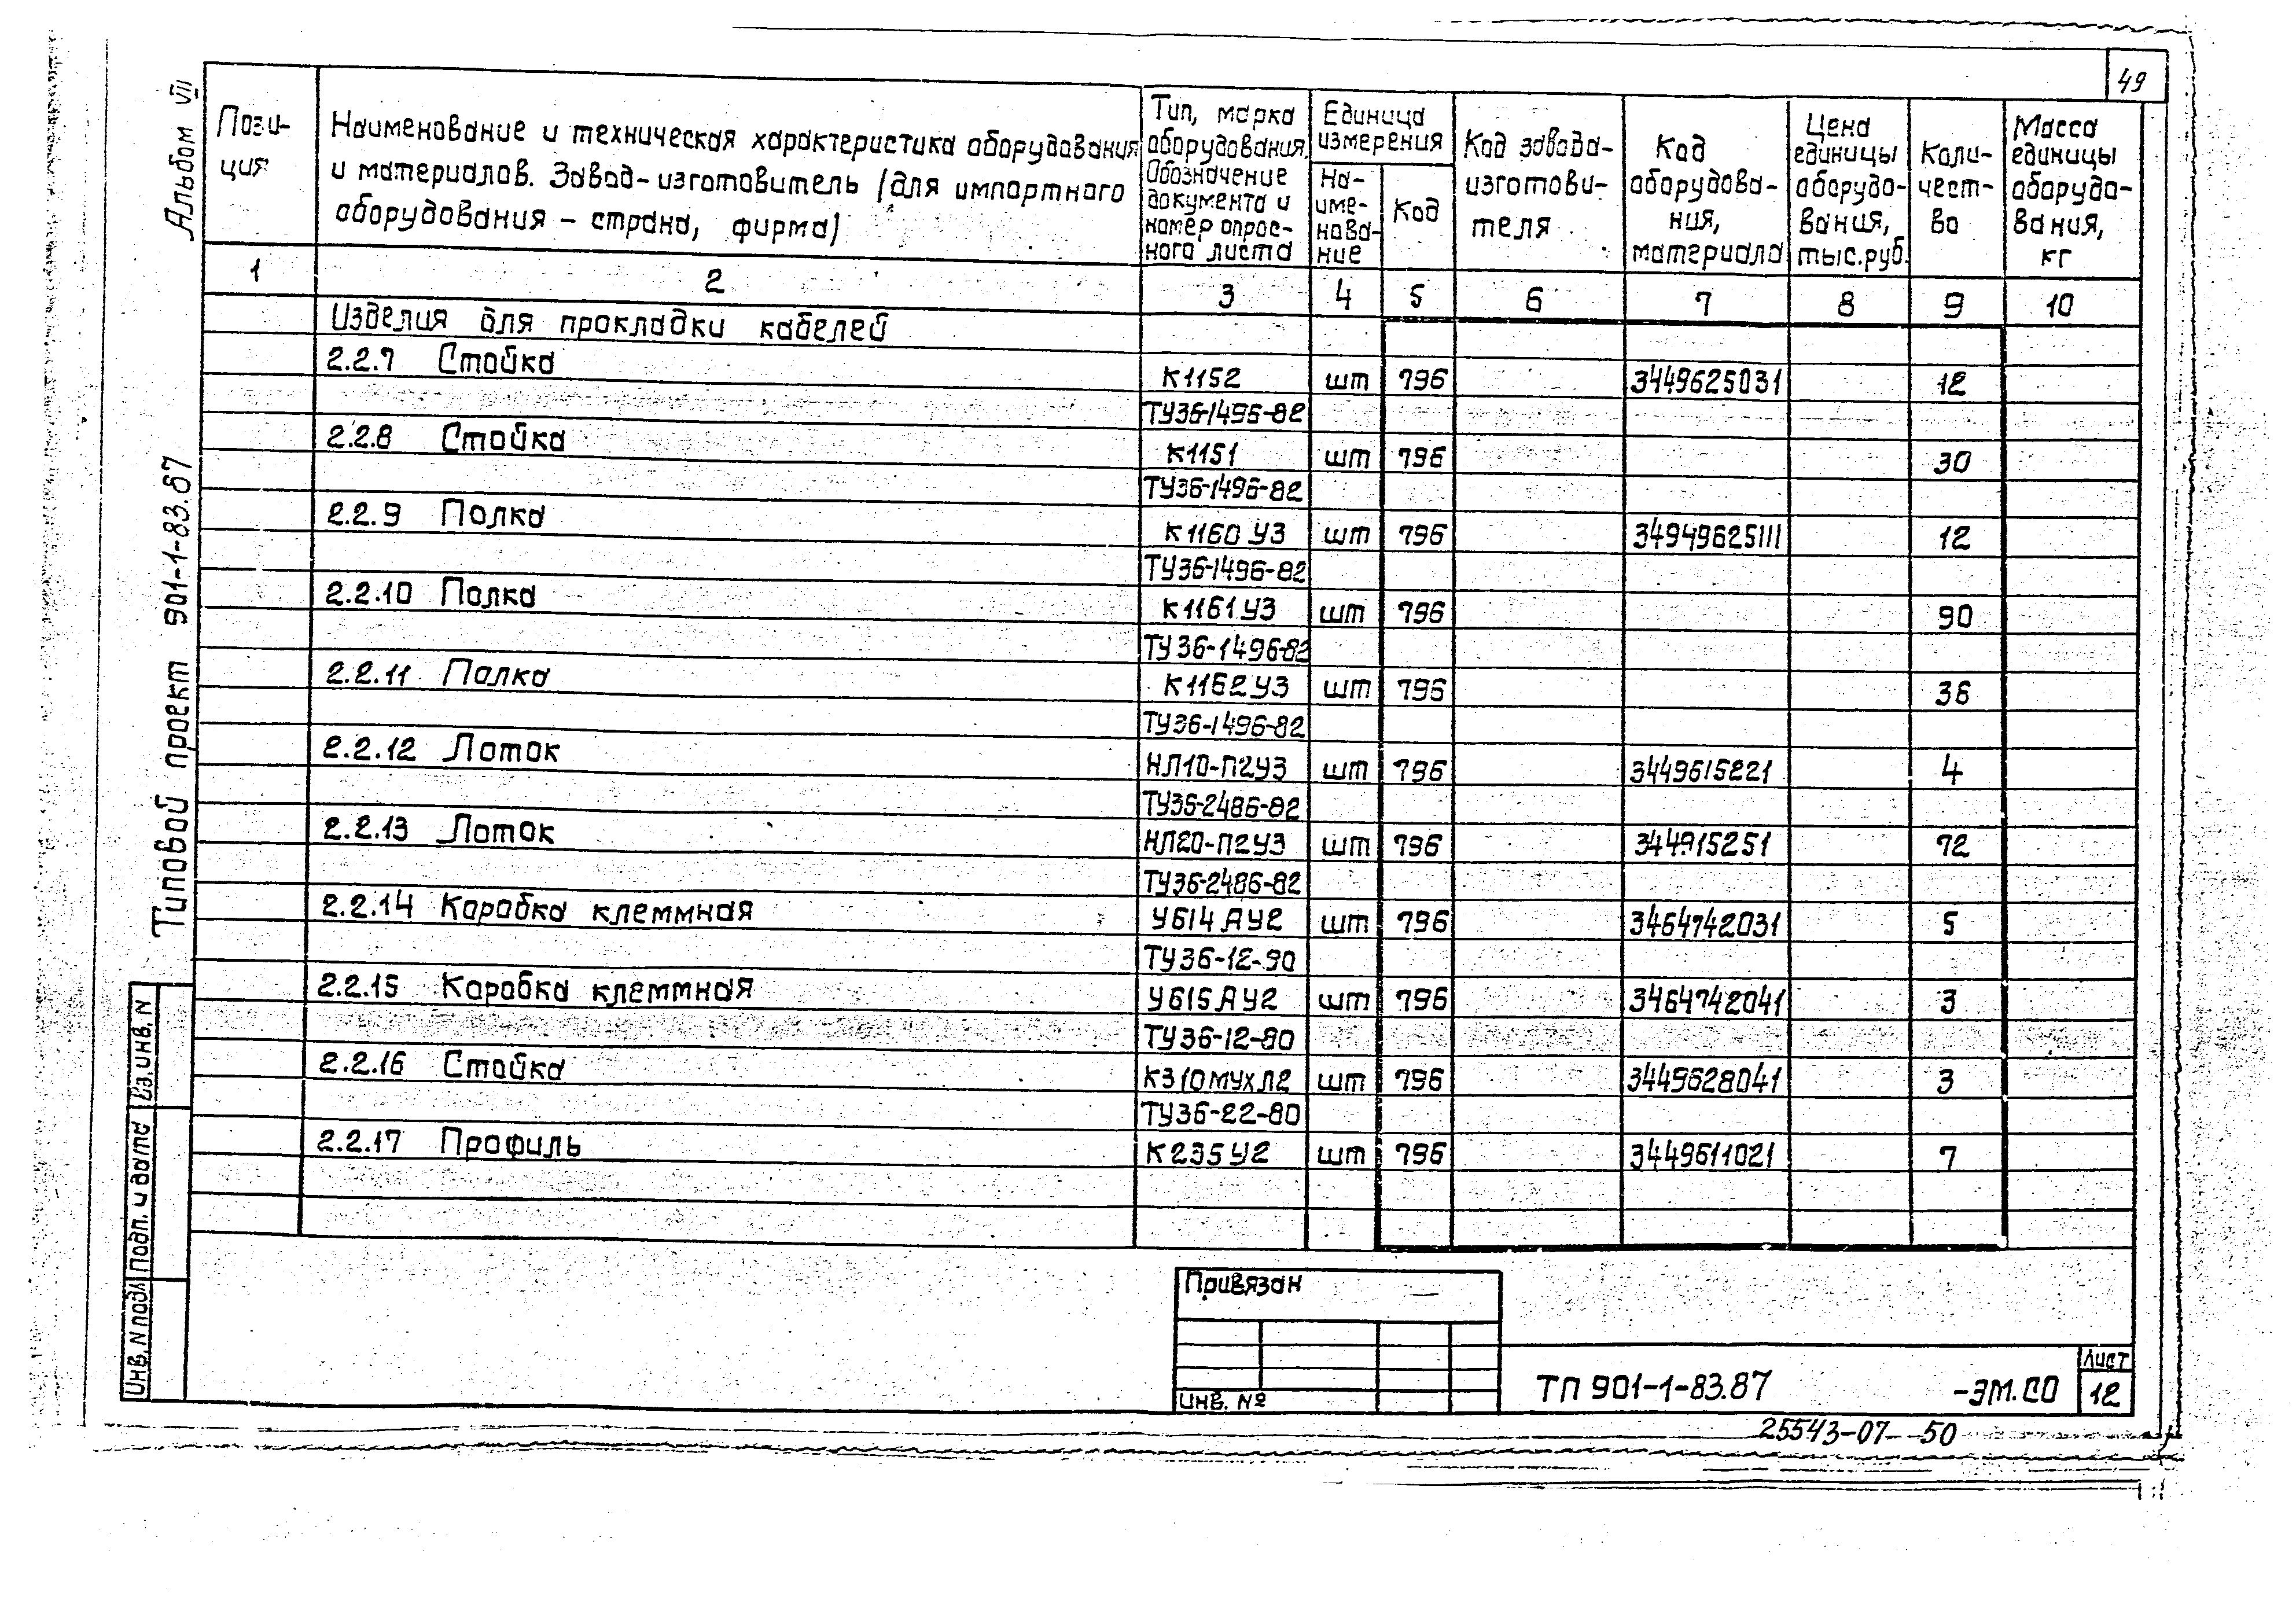 49
Альбом VII
Типовой проект 901-1-83.87
Пози-
ция
Наименование и техническая характеристика оборудования
и материалов. Завод-изготовитель (для импортного
оборудования - страна, фирма)
Тип, марка
оборудования.
Обозначение
документа и
номер опрос-
ного листа
Единица
измерения
На-
име-
нова-
ние
Код
Код завода-
изготови-
теля
Код
оборудова-
ния,
материала
Цена
единицы
оборудо-
вания,
тыс.руб.
Коли-
чест-
во
Масса
единицы
оборудо-
вания,
кг
1 2 3 4 5 6 7 8 9 10
Изделия для прокладки кабелей
2.2.7 Стойка К1152 шт 796 3449625031 12
ТУ36-1496-82
2.2.8 Стойка К1151 шт 796 30
ТУ36-1496-82
2.2.9 Полка К1160 У3 шт 796 34949625111 12
ТУ36-1496-82
2.2.10 Полка К1161.У3 шт 796 90
ТУ36-1496-82
2.2.11 Полка К1162У3 шт 796 36
ТУ36-1496-82
2.2.12 Лоток НЛ10-П2У3 шт 796 3449615221 4
ТУ36-2486-82
2.2.13 Лоток НЛ20-П2У3 шт 796 344915251 72
ТУ36-2486-82
2.2.14 Коробка клеммная У614 АУ2 шт 796 3464742031 5
ТУ36-12-90
2.2.15 Коробка клеммная У615 АУ2 шт 796 3464742041 3
ТУ36-12-80
2.2.16 Стойка К310МУХЛ2 шт 796 3449628041 3
ТУ36-22-80
2.2.17 Профиль К235У2 шт 796 3449611021 7
Вз.инв. N
Подп. и дата
Инв. N подл
Привязан
Инв. №
ТП 901-1-83.87 -ЭМ.СО
Лист
12
25543-07 50